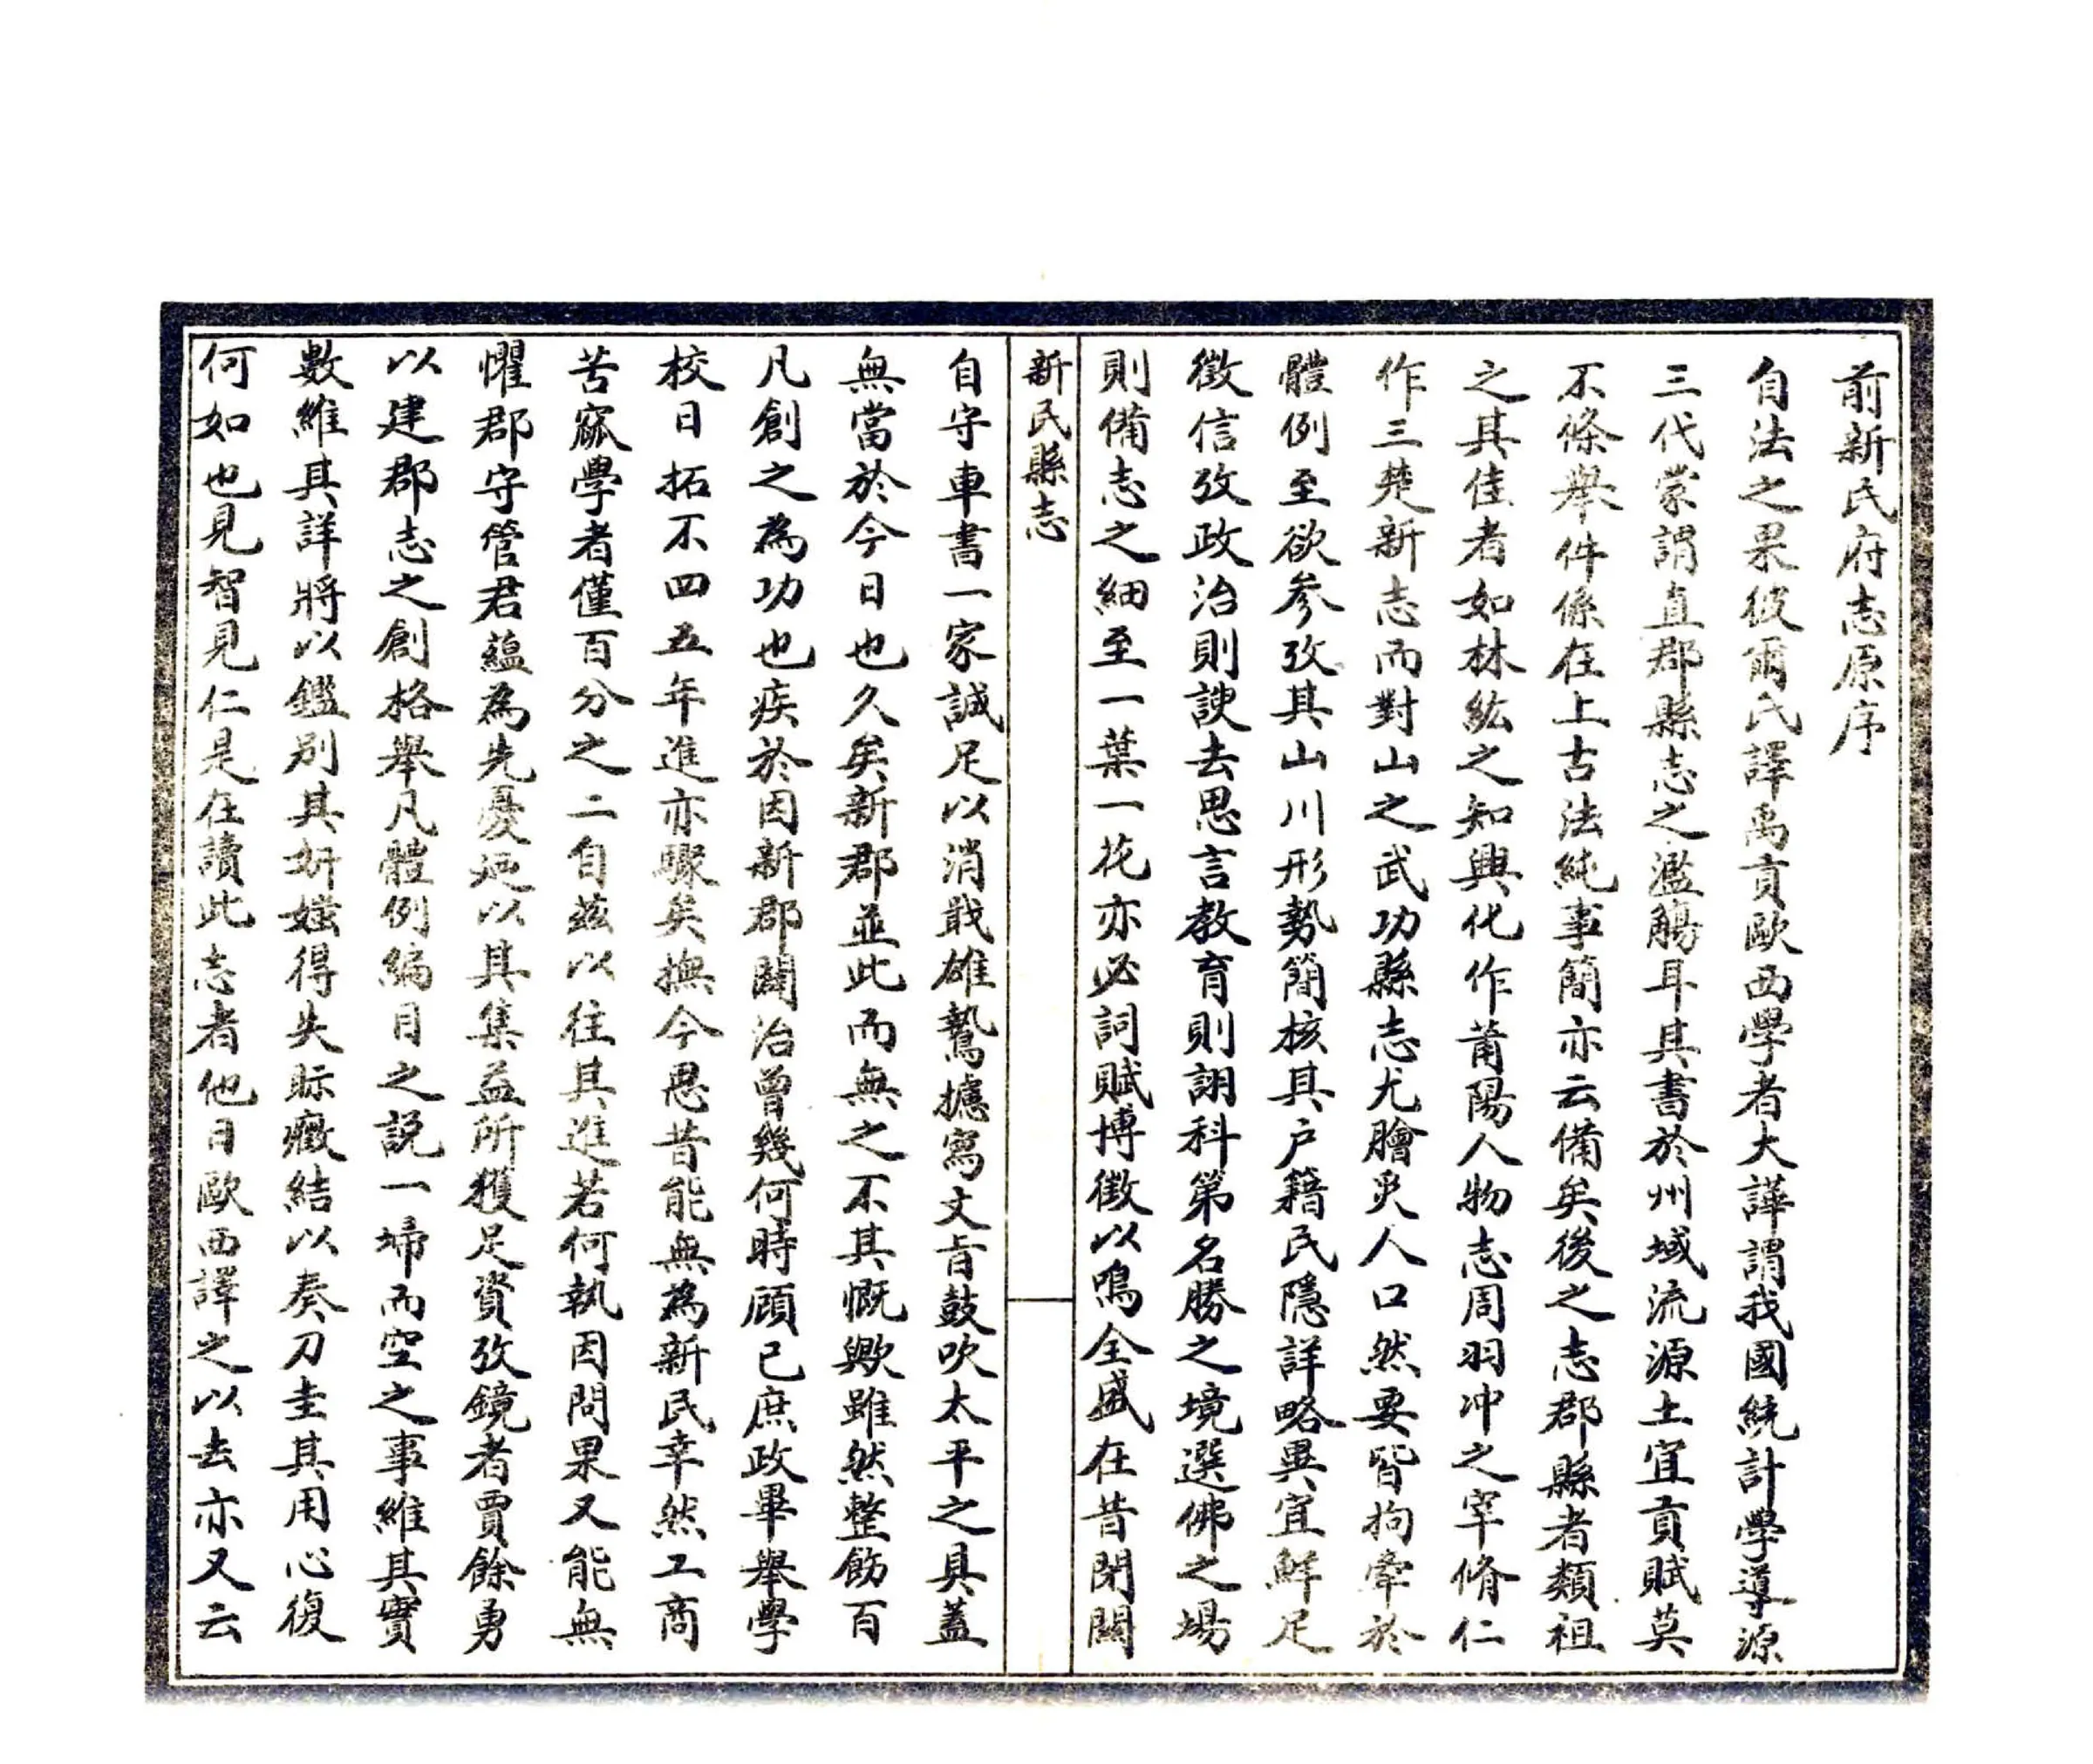 前新民府志原序
自法之果彼爾氏譯禹貢歐西學者大譁謂我國統計學導源
三代蒙謂直郡縣志之濫觴耳其書於州域流源土宜貢賦莫
不條舉件係在上古法純事簡亦云備矣後之志郡縣者類祖
之其佳者如林紘之知興化作莆陽人物志周羽冲之宰脩仁
作三楚新志而對山之武功縣志尤膾炙人口然要皆拘牽於
體例至欲参攷其山川形勢簡核其户籍民隱詳略異宜鮮足
徵信攷政治則諛去思言教育則詡科第名勝之境選佛之場
則備志之細至一葉一花亦必詞賦博徵以鳴全盛在昔閉關
新民縣志
自守車書一家誠足以消戢雄鷙攄寫文旨鼓吹太平之具蓋
無當於今日也久矣新郡並此而無之不其慨歟雖然整飭百
凡創之為功也疾於因新郡闢治曾幾何時顧已庶政畢舉學
校日拓不四五年進亦驟矣撫今思昔能無為新民幸然工商
苦窳學者僅百分之二自兹以往其進若何執因問果又能無
懼郡守管君蘊為先憂迺以其集益所獲足資攷鏡者賈餘勇
以建郡志之創格舉凡體例編目之説一埽而空之事維其實
數維其詳將以鑑别其妍媸得失眎癥結以奏刀圭其用心復
何如也見智見仁是在讀此志者他日歐西譯之以去亦又云